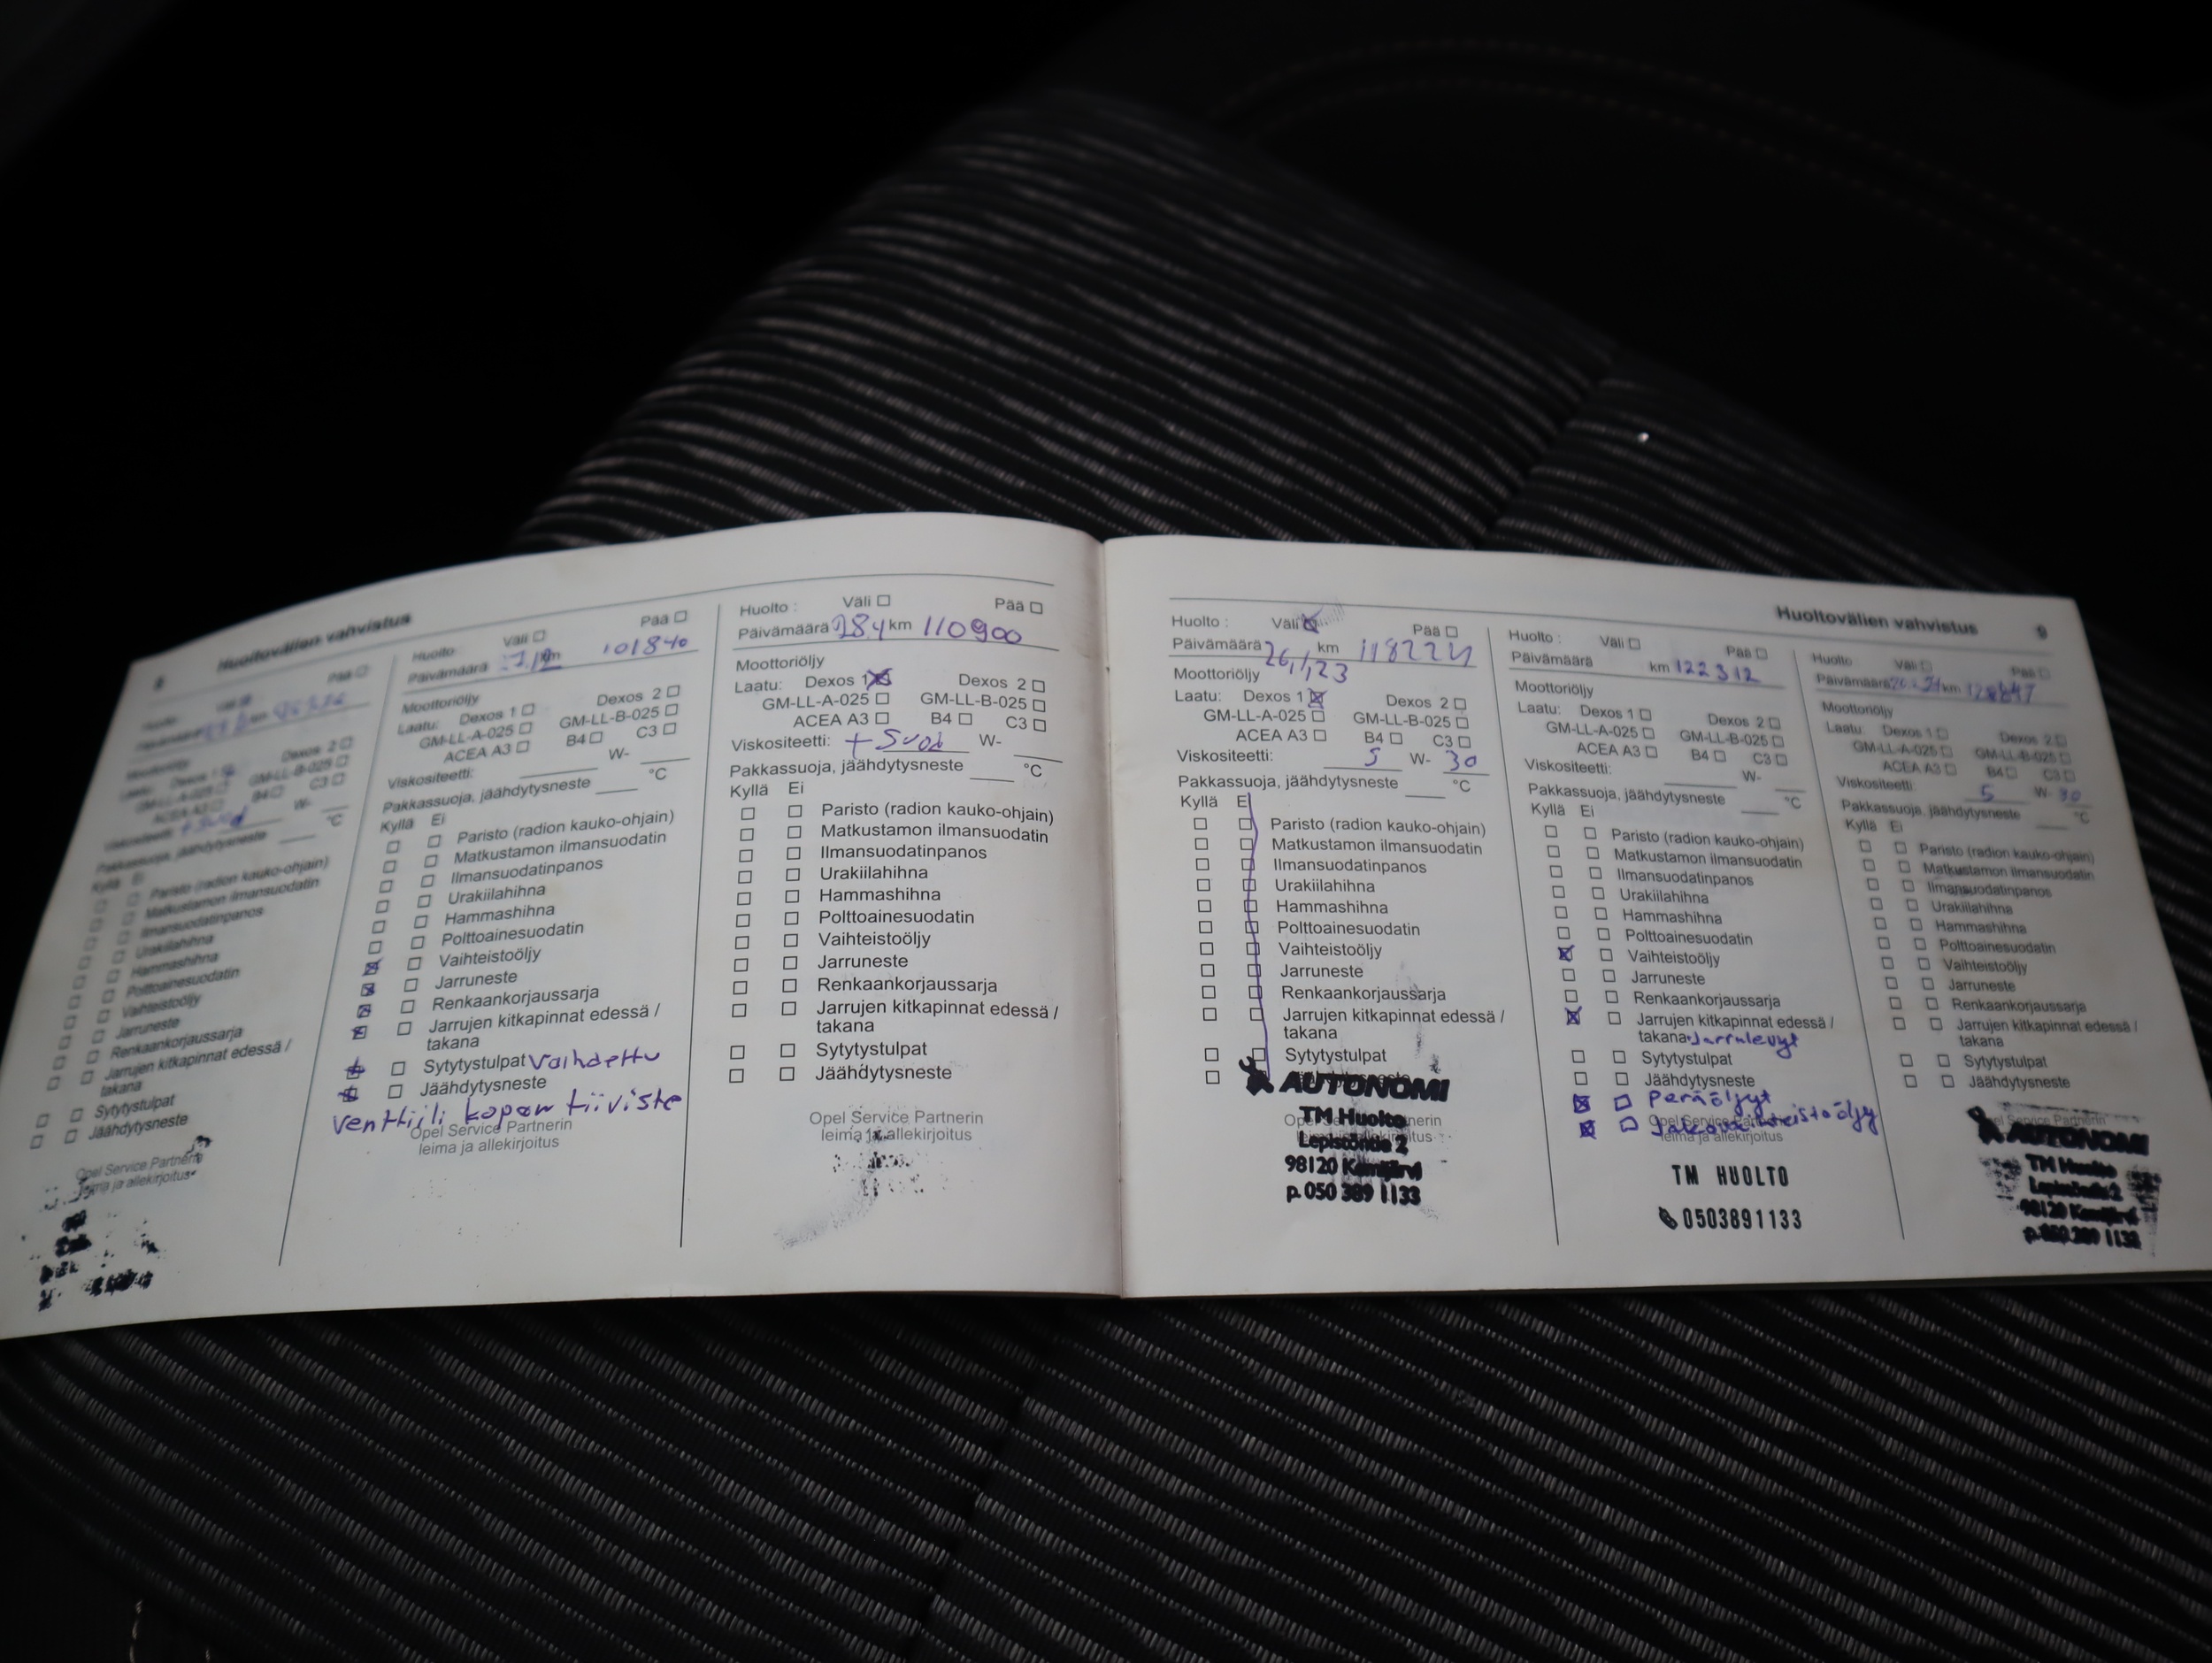 8
Huoltovälien vahvistus
Huolto
Pää
km
Moottoriöljy
Dexos 2
GM-LL-A-025 GM-LL-B-025
ACEA A3 B4 C3
Viskositeetti: + Suod W-
Pakkassuoja, jäähdytysneste °C
Kyllä Ei
Paristo (radion kauko-ohjain)
Matkustamon ilmansuodatin
Ilmansuodatinpanos
Urakiilahihna
Hammashihna
Polttoainesuodatin
Vaihteistoöljy
Jarruneste
Renkaankorjaussarja
Jarrujen kitkapinnat edessä /
takana
Sytytystulpat
Jäähdytysneste
Opel Service Partnerin
leima ja allekirjoitus
Huolto: Väli Pää
Päivämäärä km 101840
Moottoriöljy
Laatu: Dexos 1 Dexos 2
GM-LL-A-025 GM-LL-B-025
ACEA A3 B4 C3
Viskositeetti: W-
Pakkassuoja, jäähdytysneste °C
Kyllä Ei
Paristo (radion kauko-ohjain)
Matkustamon ilmansuodatin
Ilmansuodatinpanos
Urakiilahihna
Hammashihna
Polttoainesuodatin
Vaihteistoöljy
Jarruneste
Renkaankorjaussarja
Jarrujen kitkapinnat edessä /
takana
Sytytystulpat Vaihdettu
Jäähdytysneste
Venttiili kopan tiiviste
Opel Service Partnerin
leima ja allekirjoitus
Huolto : Väli Pää
Päivämäärä 28.4 km 110900
Moottoriöljy
Laatu: Dexos 1 Dexos 2
GM-LL-A-025 GM-LL-B-025
ACEA A3 B4 C3
Viskositeetti: + Suod W-
Pakkassuoja, jäähdytysneste °C
Kyllä Ei
Paristo (radion kauko-ohjain)
Matkustamon ilmansuodatin
Ilmansuodatinpanos
Urakiilahihna
Hammashihna
Polttoainesuodatin
Vaihteistoöljy
Jarruneste
Renkaankorjaussarja
Jarrujen kitkapinnat edessä /
takana
Sytytystulpat
Jäähdytysneste
Opel Service Partnerin
leima ja allekirjoitus
Huoltovälien vahvistus 9
Huolto : Väli Pää
Päivämäärä 26/1/23 km
Moottoriöljy
Laatu: Dexos 1 Dexos 2
GM-LL-A-025 GM-LL-B-025
ACEA A3 B4 C3
Viskositeetti: 5 W- 30
Pakkassuoja, jäähdytysneste °C
Kyllä Ei
Paristo (radion kauko-ohjain)
Matkustamon ilmansuodatin
Ilmansuodatinpanos
Urakiilahihna
Hammashihna
Polttoainesuodatin
Vaihteistoöljy
Jarruneste
Renkaankorjaussarja
Jarrujen kitkapinnat edessä /
takana
Sytytystulpat
AUTONOMI
TM Huolto
Lepistöntie 2
98120 Kemijärvi
p. 050 389 1133
Huolto : Väli Pää
Päivämäärä km 122312
Moottoriöljy
Laatu: Dexos 1 Dexos 2
GM-LL-A-025 GM-LL-B-025
ACEA A3 B4 C3
Viskositeetti: W-
Pakkassuoja, jäähdytysneste °C
Kyllä Ei
Paristo (radion kauko-ohjain)
Matkustamon ilmansuodatin
Ilmansuodatinpanos
Urakiilahihna
Hammashihna
Polttoainesuodatin
Vaihteistoöljy
Jarruneste
Renkaankorjaussarja
Jarrujen kitkapinnat edessä /
takana + Jarrulevyt
Sytytystulpat
Jäähdytysneste
Peräöljyt
Jakovaihteistoöljy
Opel Service Partnerin
leima ja allekirjoitus
TM HUOLTO
0503891133
Huolto Väli Pää
Päivämäärä km
Moottoriöljy
Laatu: Dexos 1 Dexos 2
GM-LL-A-025 GM-LL-B-025
ACEA A3 B4 C3
Viskositeetti: 5 W- 30
Pakkassuoja, jäähdytysneste °C
Kyllä Ei
Paristo (radion kauko-ohjain)
Matkustamon ilmansuodatin
Ilmansuodatinpanos
Urakiilahihna
Hammashihna
Polttoainesuodatin
Vaihteistoöljy
Jarruneste
Renkaankorjaussarja
Jarrujen kitkapinnat edessä /
takana
Sytytystulpat
Jäähdytysneste
AUTONOMI
TM Huolto
Lepistöntie 2
98120 Kemijärvi
p. 050 389 1133